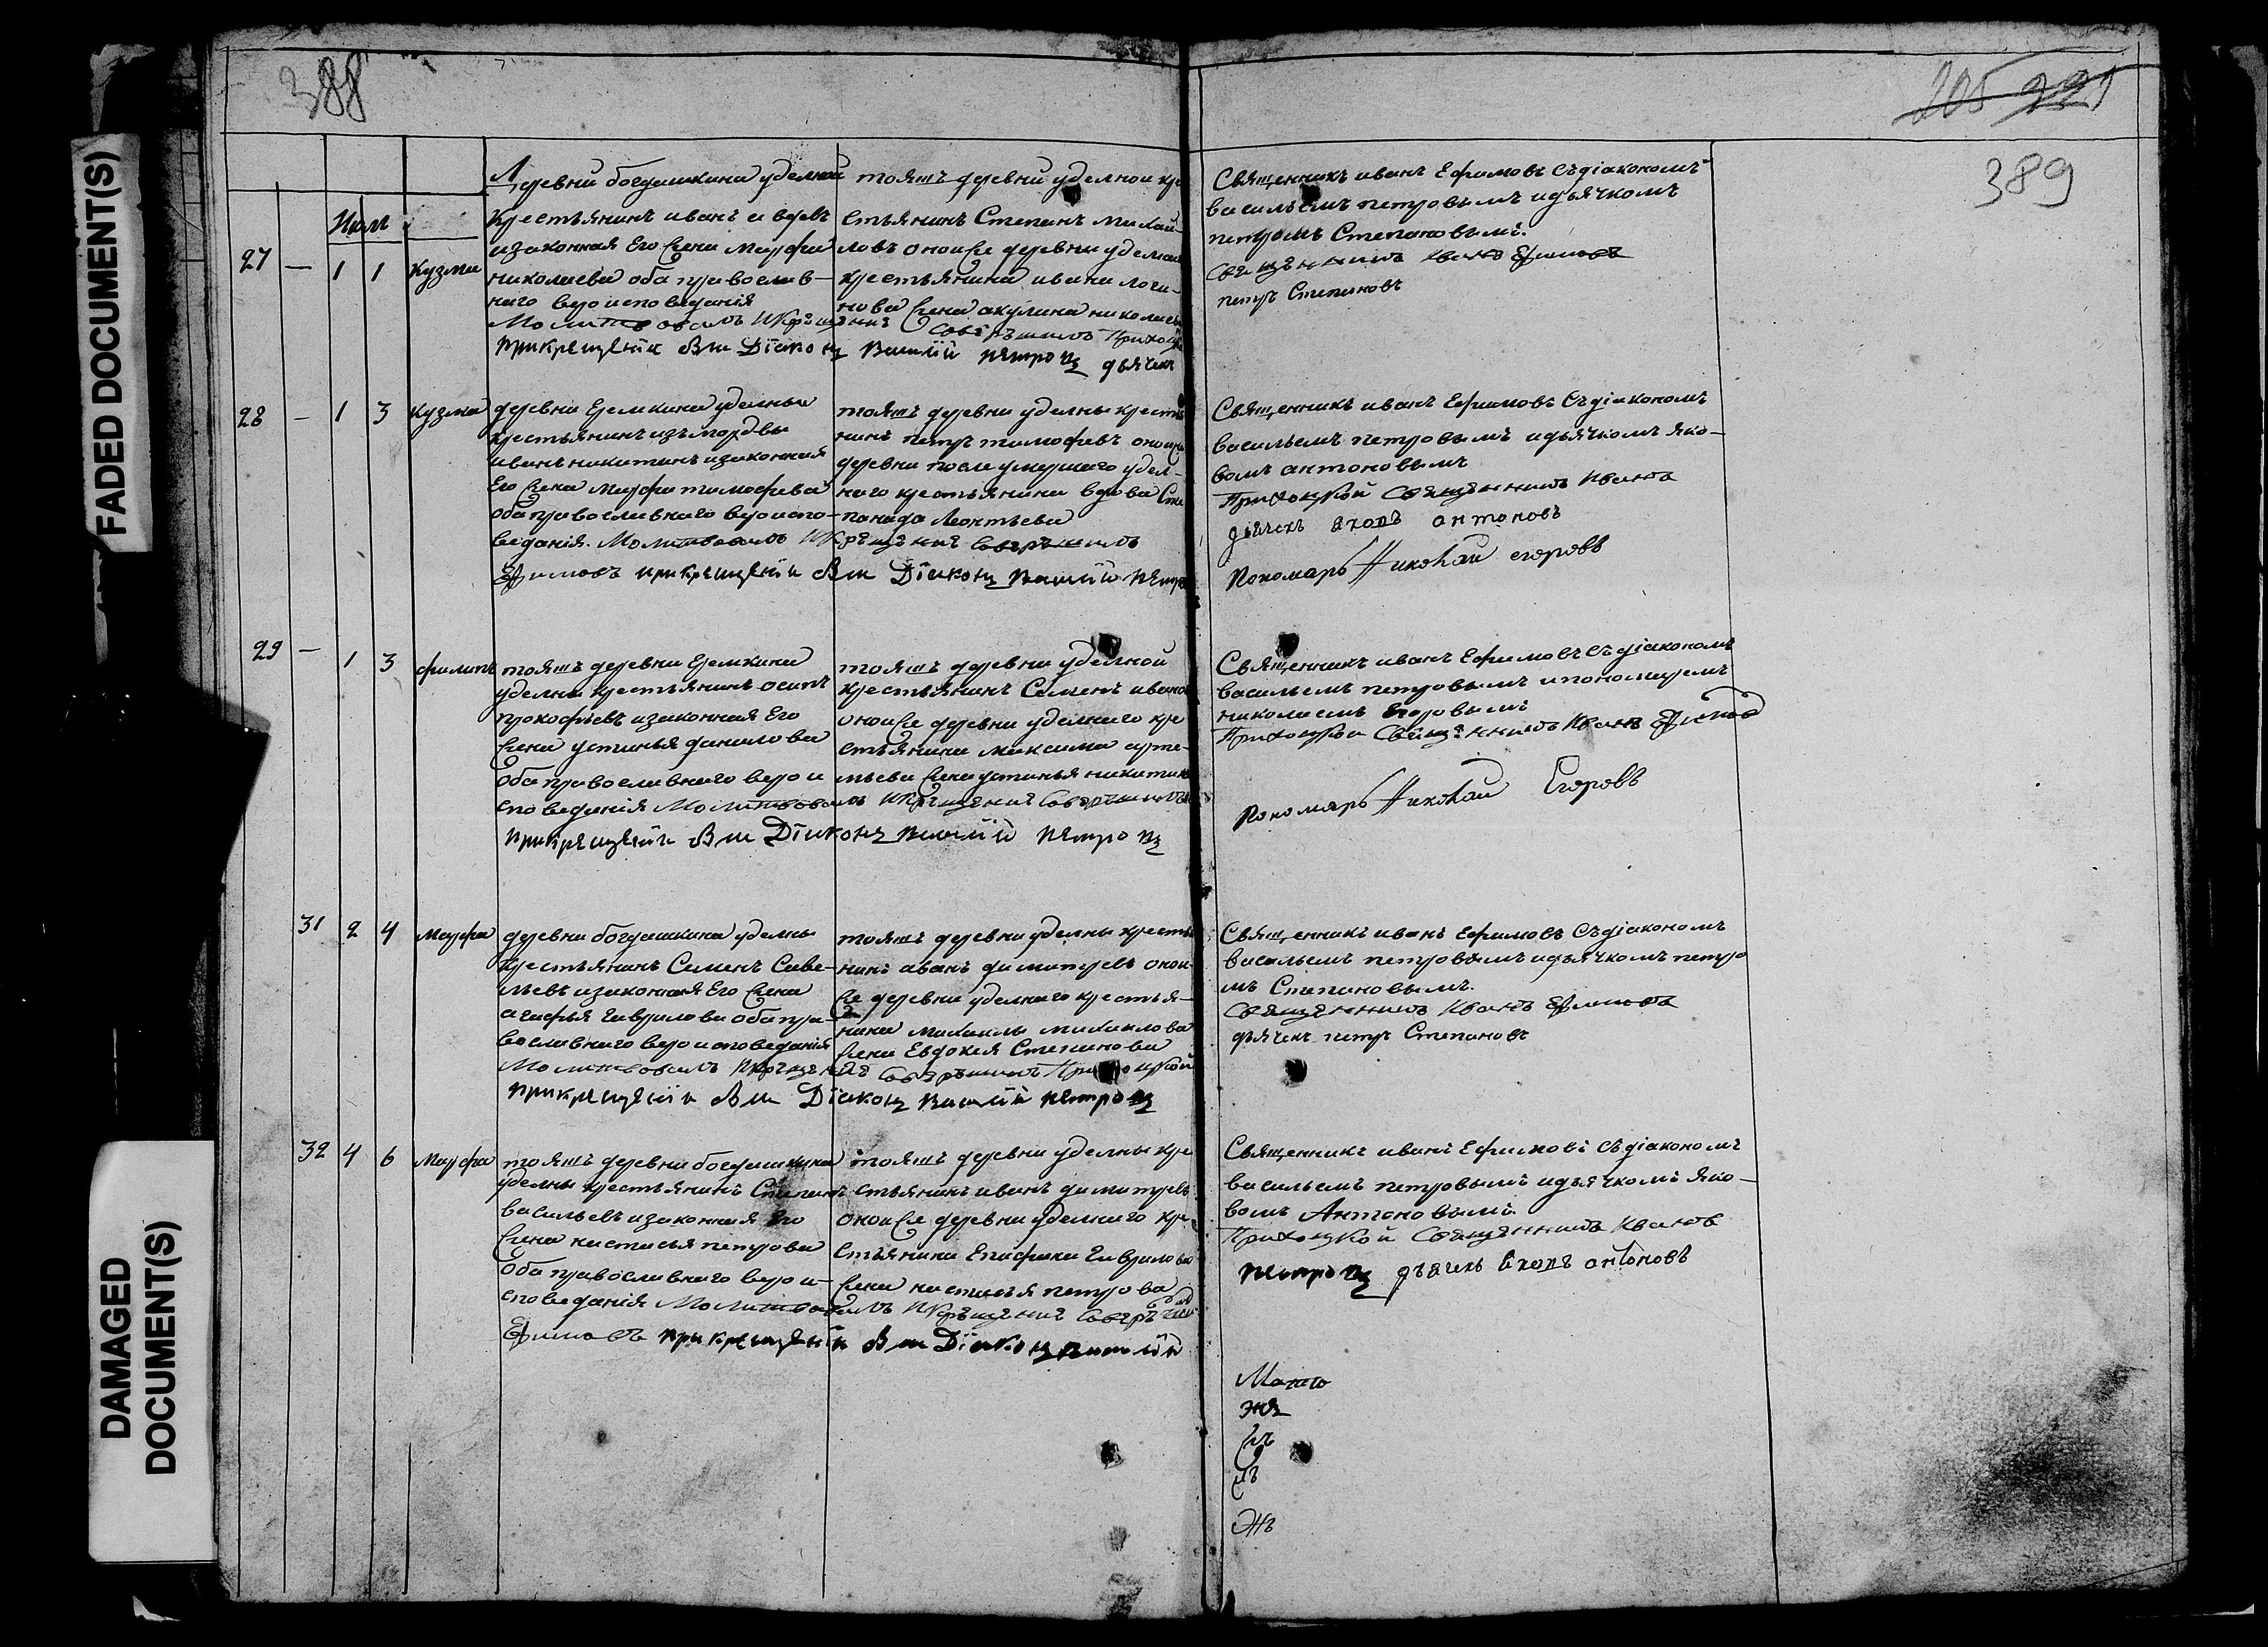 FADED DOCUMENT(S)
DAMAGED
DOCUMENT(S)
388
205 221
389
Июль
27 — 1 1 Кузма
Деревни богдашкина уделной
крестьянинъ иванъ
изаконная Его жена марфа
николаева оба православ-
наго вероисповеданія
тояжъ деревни уделнои кре
стьянинъ Степанъ михай-
ловъ оноиже деревни уделнаго
крестьянина ивана логи-
нова жена акулина николаева
Молитвовалъ И Крещение Совершилъ Приходской
При Крещеніи Былъ Дїаконъ Василїй Петровъ дьячекъ
Священникъ иванъ Ефимовъ съдіакономъ
васильемъ петровымъ идьячкомъ
петромъ Степановымъ.
Священникъ Иванъ Ефимовъ
петръ Степановъ
28 — 1 3 Кузма
деревни Еремкина уделны
крестьянинъ изъ мордвы
иванъ никитинъ изаконная
Его жена марфа тимофева
оба православнаго вероиспо-
веданія. Молитвовалъ И Крещение Совершилъ
тояжъ деревни уделны крестья
нинъ петръ тимофевъ оноиже
деревни после умершаго удел-
наго крестьянина вдова Сте
панида Леонтьева
Ефимовъ при Крещеніи Былъ Дїаконъ Василїй Петро
Священникъ иванъ Ефимовъ съдіакономъ
васильемъ петровымъ идьячкомъ яко-
вомъ антоновымъ
Приходской Священникъ Иванъ
дьячекъ яковъ антоновъ
Пономарь Николай егоровъ
29 — 1 3 филипъ
тояжъ деревни Еремкина
уделны крестьянинъ осипъ
прокофьевъ изаконная Его
жена устинья данилова
оба православнаго верои
споведанія Молитвовалъ И Крещение Совершилъ
тояжъ деревни уделной
крестьянинъ Семенъ ивано
оноиже деревни уделнаго кре
стьянина максима арте-
мьева жена устинья никитина
при Крещеніи Былъ Дїаконъ Василїй Петровъ
Священникъ иванъ Ефимовъ съдіакономъ
васильемъ петровымъ ипономаремъ
николаемъ Егоровымъ
Приходской Священникъ Иванъ Ефимовъ
Пономарь Николай Егоровъ
31 2 4 Марфа
деревни богдашкина уделны
крестьянинъ Семенъ Саве-
льевъ изаконная Его жена
агафья гаврилова оба пра-
вославнаго вероисповеданія
Молитвовалъ И Крещение Совершилъ Приходской
тояжъ деревни уделны крестья
нинъ иванъ димитревъ онои
же деревни уделнаго крестья-
нина михаилы михаилова
жена Евдокея Степанова
при Крещеніи Былъ Дїаконъ Василїй Петровъ
Священникъ иванъ Ефимовъ съдіакономъ
васильемъ петровымъ идьячкомъ петро
мъ Степановымъ.
Священникъ Иванъ Ефимовъ
дьячекъ петръ Степановъ
32 4 6 Марфа
тояжъ деревни богдашкина
уделны крестьянинъ Степанъ
васильевъ изаконная Его
жена настасья петрова
оба православнаго верои-
споведанія Молитвовалъ И Крещение Совершилъ
тояжъ деревни уделны кре
стьянинъ иванъ димитревъ
оноиже деревни уделнаго кре
стьянина Епифана гаврилова
жена настасья петрова
Ефимовъ при Крещеніи Былъ Дїаконъ Василїй
Священникъ иванъ Ефимовъ съдіакономъ
васильемъ петровымъ идьячкомъ яко-
вомъ Антоновымъ
Приходской Священникъ Иванъ
Петровъ дьячекъ яковъ антоновъ